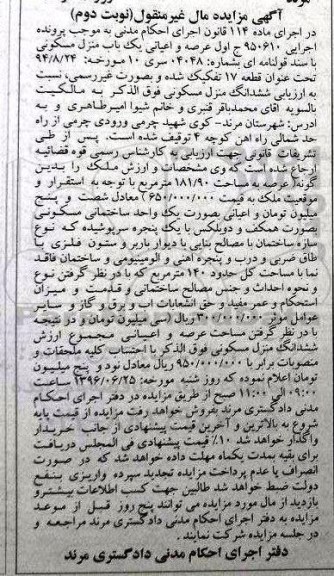 آگهی مزایده مال غیرمنقول(نوبت دوم)
در اجرای ماده ۱۱۴ قانون اجرای احکام مدنی به موجب پرونده
اجرایی ۹۵۰۶۱۰ ج اول عرصه و اعیانی یک باب منزل مسکونی
با سند قولنامه ای بشماره: ۰۴۰۴۸ سری ۱۰ مورخه: ۹۴/۸/۲۴
تحت عنوان قطعه ۱۷ تفکیک شده و بصورت غیررسمی، نسبت
به ارزیابی ششدانگ منزل مسکونی فوق الذکر به مالکیت
بالسویه آقای محمدباقر قنبری و خانم شیوا امیرطاهری و به
ادرس: شهرستان مرند- کوی شهید چرمی ورودی چرمی از راه
حد شمالی راه اهن کوچه ۴ توقیف شده است. پس از طی
تشریفات قانونی جهت ارزیابی به کارشناس رسمی قوه قضائیه
ارجاع شده است که وی مشخصات و ارزش ملک را بدین
گونه( عرصه به مساحت ۱۸۱/۹۰ مترمربع با توجه به استقرار و
موقعیت ملک به قیمت ۶۵۰/۰۰۰/۰۰۰) معادل شصت و پنج
میلیون تومان و اعیانی بصورت یک واحد ساختمانی مسکونی
بصورت همکف و دوبلکس با یک پنجره سرپوشیده که نوع
سازه ساختمان با مصالح بنایی با دیوار باربر و ستون فلزی با
طاق ضربی و درب و پنجره اهنی و الومینیومی و ساختمان فاقد
نما با مساحت کل حدود ۱۴۰ مترمربع که با در نظر گرفتن نوع
و نحوه احداث و جنس مصالح ساختمانی و قدمت و میزان
استحکام و عمر مفید و حق انشعابات اب و برق و گاز و سایر
عوامل موثر ۳۰۰/۰۰۰/۰۰۰ ریال (سی میلیون تومان و در نتیجه
با در نظر گرفتن مساحت عرصه و اعیانی مجموع ارزش
ششدانگ منزل مسکونی فوق الذکر با احتساب کلیه ملحقات و
منصوبات برابر با ۹۵۰/۰۰۰/۰۰۰ ریال معادل نود و پنج میلیون
تومان اعلام نموده که روز شنبه مورخه: ۱۳۹۶/۰۶/۲۵ ساعت
۰۹:۰۰ الی ۱۱:۰۰ صبح از طریق مزایده در دفتر اجرای احکام
مدنی دادگستری مرند بفروش خواهد رفت مزایده از قیمت پایه
شروع به بالاترین و آخرین قیمت پیشنهادی از جانب خریدار
واگذار خواهد شد ۱۰٪ قیمت پیشنهادی فی المجلس دریافت
برای بقیه بمدت یکماه مهلت داده خواهد شد که در صورت
انصراف یا عدم پرداخت مزایده تجدید سپرده واریزی بنفع
دولت ضبط خواهد شد طالبین جهت کسب اطلاعات بیشتر و
بازدید از مال مورد مزایده می توانند پنج روز قبل از موعد
مزایده به دفتر اجرای احکام مدنی دادگستری مرند مراجعه و
در جلسه مزایده شرکت نمایند.
دفتر اجرای احکام مدنی دادگستری مرند